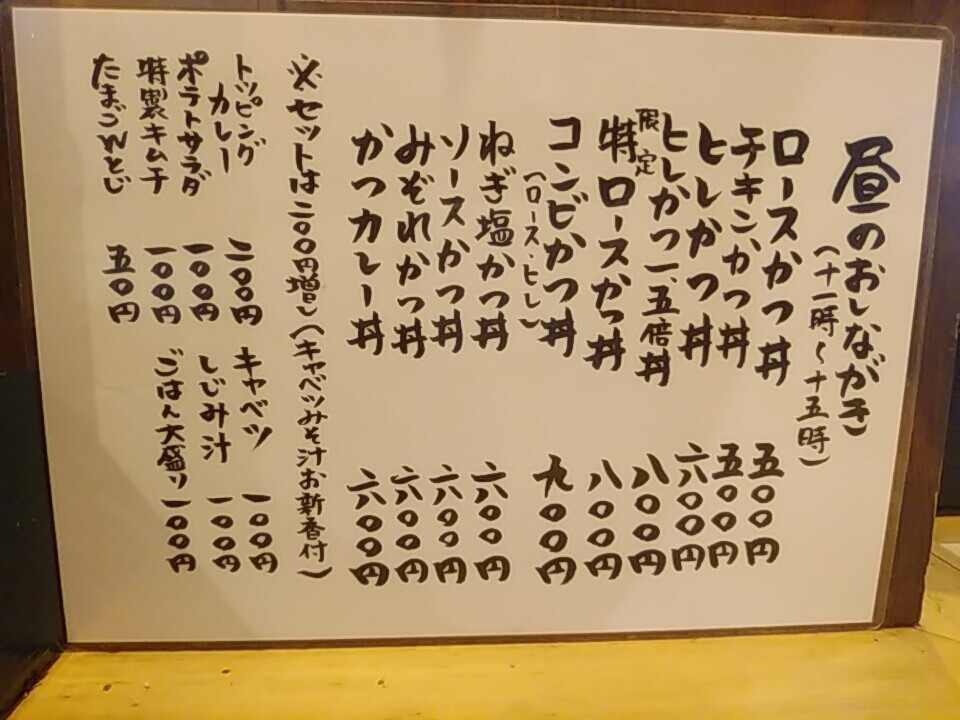 昼のおしながき
(十一時～十五時)
ロースかつ丼 五〇〇円
チキンかつ丼 五〇〇円
ヒレかつ丼 六〇〇円
限定 ヒレかつ一、五倍丼 八〇〇円
特ロースかつ丼 八〇〇円
コンビかつ丼 九〇〇円
(ロース・ヒレ)
ねぎ塩かつ丼 六〇〇円
ソースかつ丼 六〇〇円
みぞれかつ丼 六〇〇円
かつカレー丼 六〇〇円
※セットは二〇〇円増し(キャベツみそ汁お新香付)
トッピング
カレー 二〇〇円
ポテトサラダ 一〇〇円
特製キムチ 一〇〇円
たまごとじ 五〇円
キャベツ 一〇〇円
しじみ汁 一〇〇円
ごはん大盛り 一〇〇円